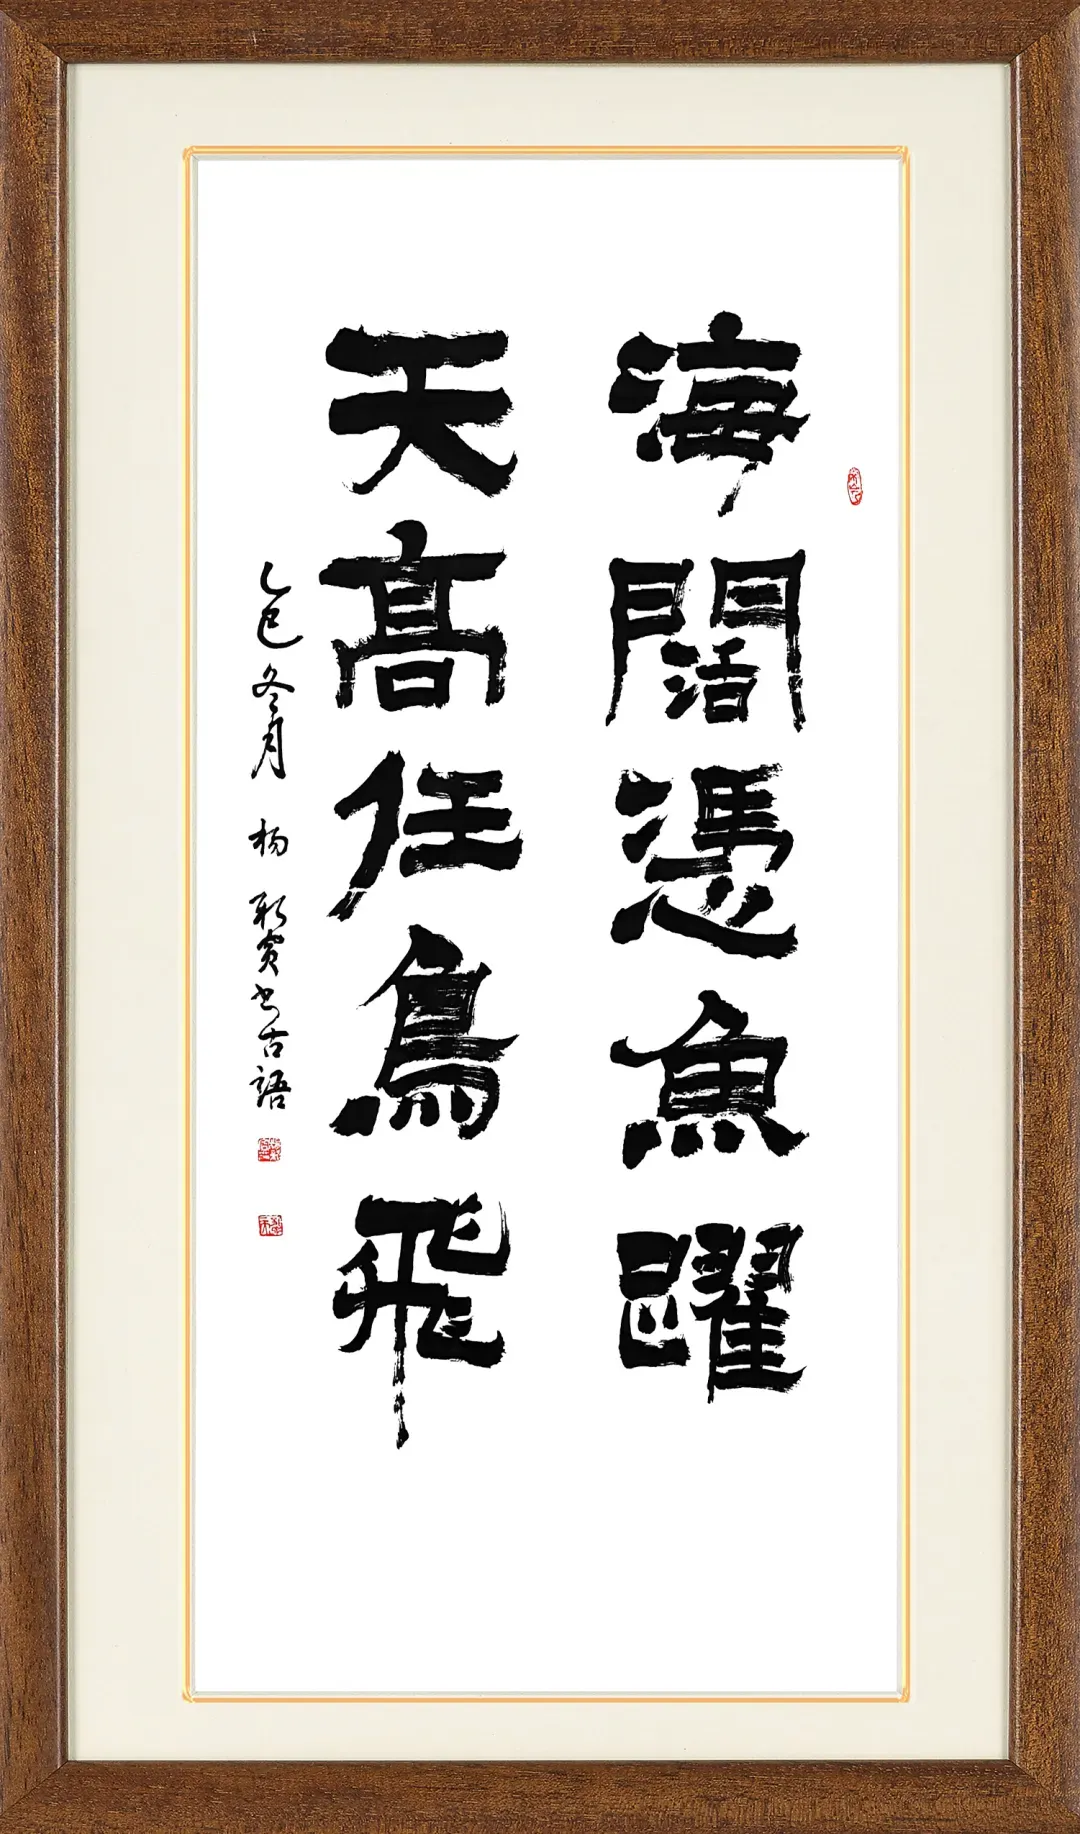 海闊憑魚躍
天高任鳥飛
乙巳冬月 楊 書古語